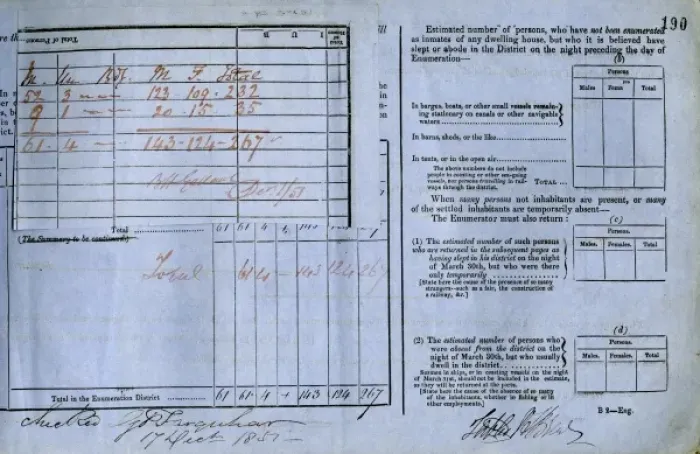 190
Total of Persons
M F Total
52 3 — — 123 - 109 - 232
9 1 — — 20 - 15 - 35
61 - 4 — 143 - 124 - 267
Total
61 61 4
(The Summary to be continued)
Total 61 4 - 143 124 267
Total in the Enumeration District
61 61 4 - 143 124 267
Checked
17 Oct 1851
Estimated number of persons, who have not been enumerated
as inmates of any dwelling house, but who it is believed have
slept or abode in the District on the night preceding the day of
Enumeration—
(b)
Persons
Males Total
In barges, boats, or other small vessels remain-
ing stationary on canals or other navigable
waters
In barns, sheds, or the like
In tents, or in the open air
The above numbers do not include
people in coasting or other sea-going
vessels, nor persons travelling in rail-
ways through the district.
TOTAL ...
When many persons not inhabitants are present, or many
of the settled inhabitants are temporarily absent—
The Enumerator must also return :
(c)
Persons.
Males. Females. Total.
(1) The estimated number of such persons
who are returned in the subsequent pages as
having slept in his district on the night
of March 30th, but who were there
only temporarily
[State here the cause of the presence of so many
strangers—such as a fair, the construction of
a railway, &c.]
(d)
Persons.
Males. Females. Total.
(2) The estimated number of persons who
were absent from the district on the
night of March 30th, but who usually
dwell in the district
[State here the cause of the absence of so many
of the inhabitants, whether in fishing or in
other employments.]
B 2—Eng.